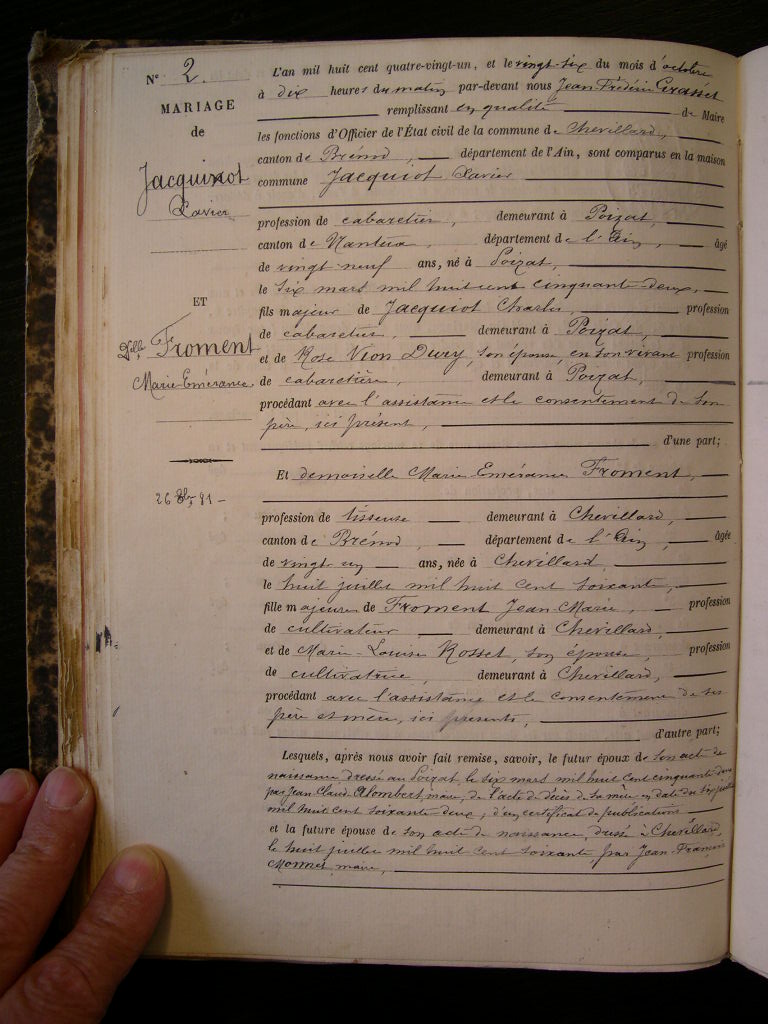 N° 2.
MARIAGE
de
Jacquinot
Xavier
ET
Delle Froment
Marie-Emérance
26 8bre 81 -
L'an mil huit cent quatre-vingt-un, et le vingt-six du mois d'octobre
à dix heures du matin par-devant nous Jean-Frédéric Grasset
remplissant en qualité de Maire
les fonctions d'Officier de l'État civil de la commune de Chevillard,
canton de Brénod, département de l'Ain, sont comparus en la maison
commune Jacquiot Xavier
profession de cabaretier, demeurant à Poizat,
canton de Nantua, département de l'Ain, âgé
de vingt neuf ans, né à Poizat,
le six mars mil huit cent cinquante-deux,
fils majeur de Jacquiot Charles, profession
de cabaretier, demeurant à Poizat,
et de Rose Vion Dury, son épouse, en son vivant profession
de cabaretière, demeurant à Poizat,
procédant avec l'assistance et le consentement de son
père, ici présent,
d'une part;
Et demoiselle Marie Emérance Froment,
profession de tisseuse demeurant à Chevillard,
canton de Brénod, département de l'Ain, âgée
de vingt un ans, née à Chevillard,
le huit juillet mil huit cent soixante,
fille majeure de Froment Jean-Marie, profession
de cultivateur demeurant à Chevillard,
et de Marie-Louise Rosset, son épouse, profession
de cultivatrice, demeurant à Chevillard,
procédant avec l'assistance et le consentement de ses
père et mère, ici présents,
d'autre part;
Lesquels, après nous avoir fait remise, savoir, le futur époux de son acte de
naissance dressé au Poizat le six mars mil huit cent cinquante deux
par Jean Claude Alombert, maire, de l'acte de décès de sa mère en date du six juillet
mil huit cent soixante deux, d'un certificat de publications
et la future épouse de son acte de naissance, dressé à Chevillard,
le huit juillet mil huit cent soixante par Jean-François
Monnet, maire,